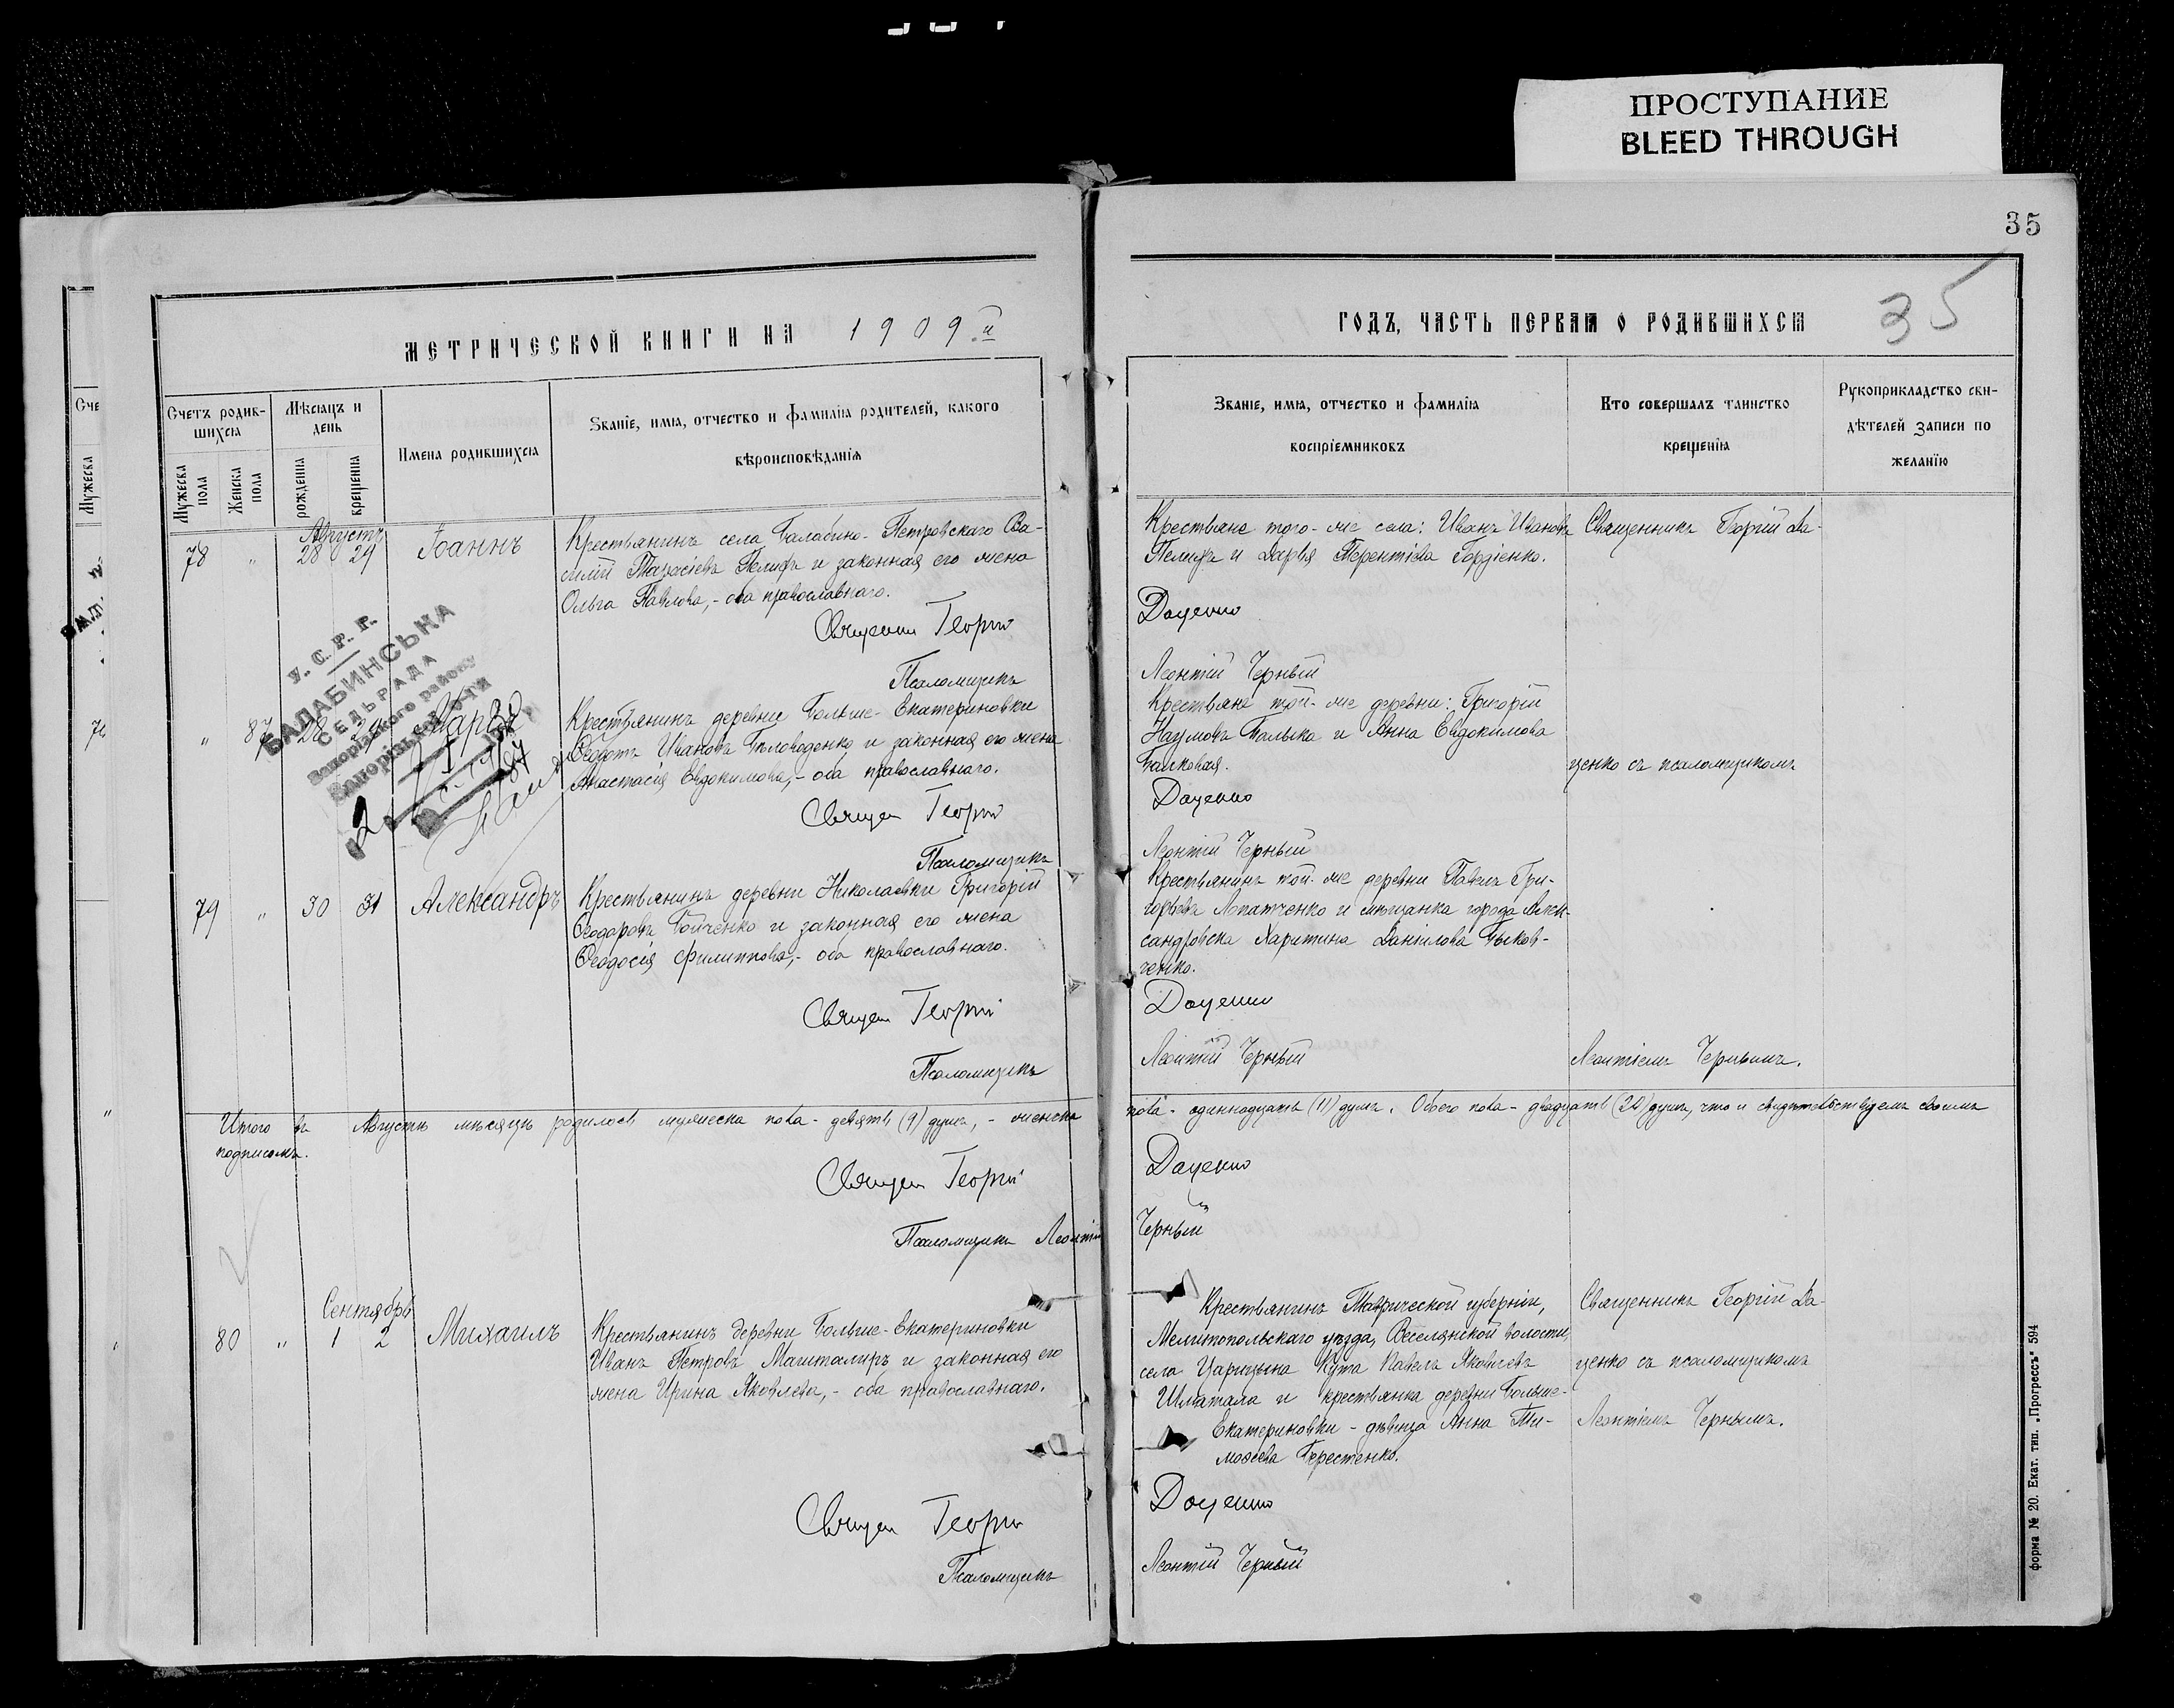 ПРОСТУПАНИЕ
BLEED THROUGH
35
35
МЕТРИЧЕСКОЙ КНИГИ НА 1909 й
ГОДЪ, ЧАСТЬ ПЕРВАЯ О РОДИВШИХСЯ
Счетъ родив-
шихся
Мужеска пола
Женска пола
Мѣсяцъ и
день
рожденія
крещенія
Имена родившихся
Званіе, имя, отчество и фамилія родителей, какого
вѣроисповѣданія
Званіе, имя, отчество и фамилія
воспріемниковъ
Кто совершалъ таинство
крещенія
Рукоприкладство сви-
дѣтелей записи по
желанію
Августъ
78 " 28 29 Іоаннъ
Крестьянинъ села Балабино-Петровскаго Ва-
силій Тарасіевъ и законная его жена
Ольга Павлова,- оба православнаго.
Георгій
Псаломщикъ
Крестьяне того-же села: Иванъ Ивановъ
и Дарья Терентіева Гордіенко.
Доценко
Леонтій Черный
Священникъ Георгій До-
У. С. Р. Р.
БАЛАБИНСЬКА
СЕЛЬРАДА
Запорізького району
" 87 28 29
Крестьянинъ деревни Больше-Екатериновки
Ѳедотъ Ивановъ и законная его жена
Анастасія Евдокимова,- оба православнаго.
Священ Георгій
Псаломщикъ
Крестьяне той-же деревни: Григорій
Наумовъ и Анна Евдокимова
Доценко
Леонтій Черный
ценко съ псаломщикомъ
79 " 30 31 Александръ
Крестьянинъ деревни Николаевки Григорій
Ѳеодоровъ Бойченко и законная его жена
Ѳеодосія Филиппова,- оба православнаго.
Священ Георгій
Псаломщикъ
Крестьянинъ той-же деревни Павелъ Гри-
горьевъ Лопатченко и мѣщанка города Алек-
сандровска Харитина Даніилова Быков-
ченко.
Доценко
Леонтій Черный
Леонтіемъ Чернымъ.
Итого въ Августѣ мѣсяцѣ родилось мужеска пола - девять (9) душъ, - женска
пола - одиннадцать (11) душъ. Обоего пола - двадцать (20) душъ, что и свидѣтельствуемъ своимъ
подписомъ.
Священ Георгій
Доценко
Псаломщикъ Леонтій
Черный
Сентябрь
80 " 1 2 Михаилъ
Крестьянинъ деревни Больше-Екатериновки
Иванъ Петровъ Магиталиръ и законная его
жена Ирина Яковлева,- оба православнаго.
Священ Георгій
Псаломщикъ
Крестьянинъ Таврической губерніи,
Мелитопольскаго уѣзда, Веселянской волости,
села Царицына Кута Павелъ Яковлевъ
Шматала и крестьянка деревни Больше-
Екатериновки - дѣвица Анна Ти-
моѳеева Берестенко.
Доценко
Леонтій Черный
Священникъ Георгій До-
ценко съ псаломщикомъ
Леонтіемъ Чернымъ.
форма № 20. Екат. тип. „Прогрессъ" 594